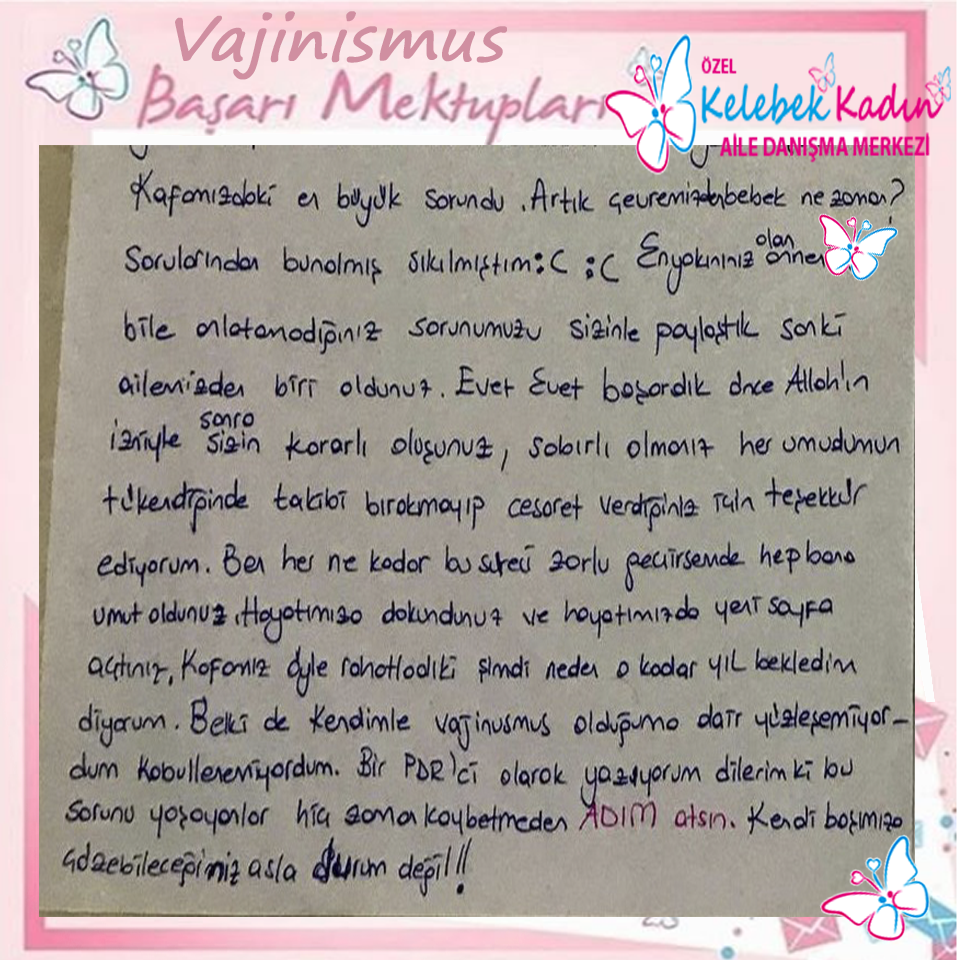 Vajinismus
Başarı Mektupları
ÖZEL
Kelebek Kadın
AİLE DANIŞMA MERKEZİ
Kafamızdaki en büyük sorundu. Artık çevremizden bebek ne zaman?
Sorularından bunalmış sıkılmıştım :C :C En yakınınız olan
bile anlatamadığınız sorunumuzu sizinle paylaştık sanki
ailemizden biri oldunuz. Evet Evet başardık önce Allah'ın
izniyle sonra sizin kararlı oluşunuz, sabırlı olmanız her umudumun
tükendiğinde takibi bırakmayıp cesaret verdiğiniz için teşekkür
ediyorum. Ben her ne kadar bu süreci zorlu geçirsemde hep bana
umut oldunuz. Hayatımıza dokundunuz ve hayatımızda yeni sayfa
açtınız. Kafamız öyle rahatladıki şimdi neden o kadar yıl bekledim
diyorum. Belki de Kendimle vajinusmus olduğuma dair yüzleşemiyor-
dum kabullenemiyordum. Bir PDR'ci olarak yazıyorum dilerim ki bu
sorunu yaşayanlar hiç zaman kaybetmeden ADIM atsın. Kendi başımıza
çözebileceğimiz asla durum değil!!